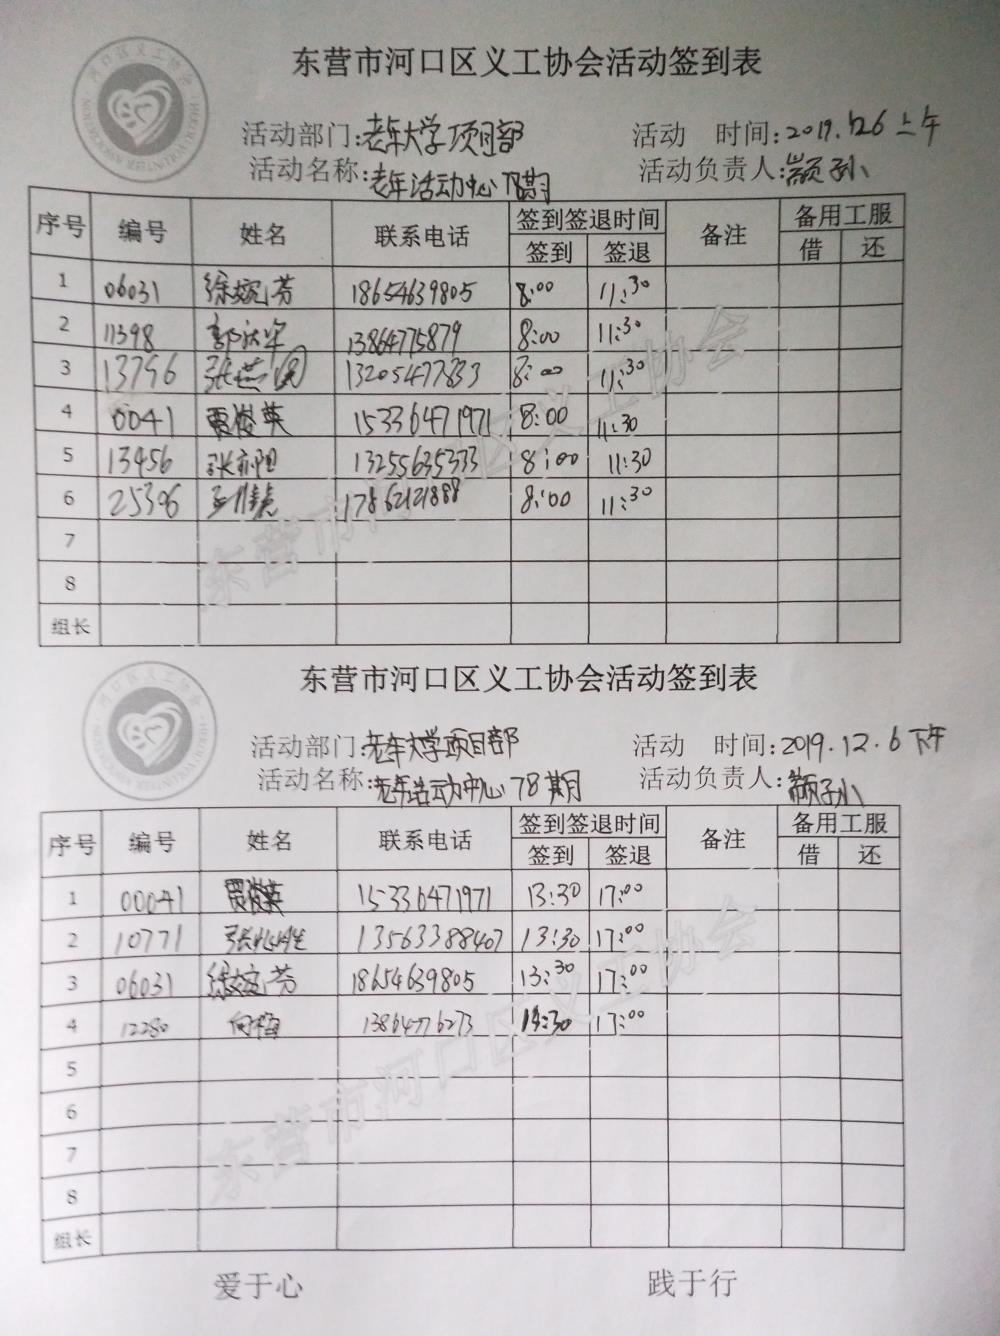 东营市河口区义工协会活动签到表
活动部门:老年大学项目部 活动 时间:2019.12.6上午
活动名称:老年活动中心78期 活动负责人:颛孙
序号 编号 姓名 联系电话 签到签退时间 备注 备用工服
签到 签退 借 还
1 06031 徐婉芳 18654639805 8:00 11:30
2 11398 13864775879 8:00 11:30
3 13796 张燕 13205477833 8:00 11:30
4 0041 贾俊英 15336471971 8:00 11:30
5 13456 13255635333 8:00 11:30
6 25396 17862121888 8:00 11:30
7
8
组长
东营市河口区义工协会活动签到表
活动部门:老年大学项目部 活动 时间:2019.12.6下午
活动名称:老年活动中心78期 活动负责人:颛孙
序号 编号 姓名 联系电话 签到签退时间 备注 备用工服
签到 签退 借 还
1 00041 贾俊英 15336471971 13:30 17:00
2 10771 13563388407 13:30 17:00
3 06031 徐婉芳 18654639805 13:30 17:00
4 12280 向梅 13864776273 13:30 17:00
5
6
7
8
组长
爱于心 践于行
东营市河口区义工协会
东营市河口区义工协会